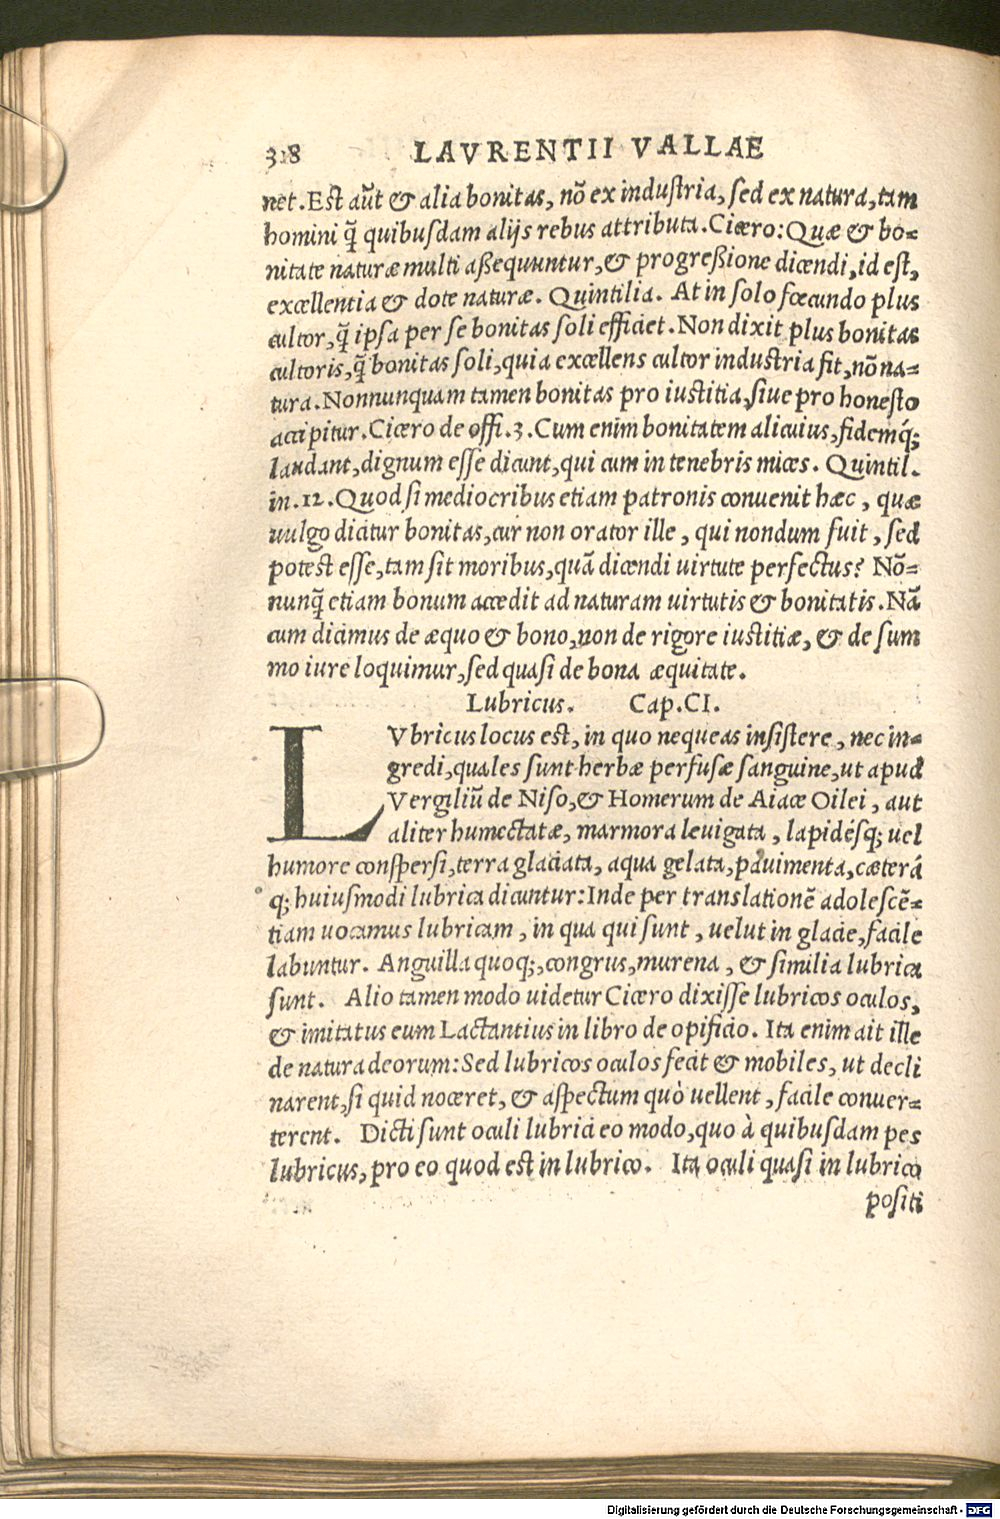 318 LAVRENTII VALLAE
net. Est aũt & alia bonitas, nõ ex industria, sed ex natura, tam
homini q̃ quibusdam alijs rebus attributa. Cicero: Quæ & bo-
nitate naturæ multi assequuntur, & progressione dicendi, id est,
excellentia & dote naturæ. Quintilia. At in solo fœcundo plus
cultor, q̃ ipsa per se bonitas soli efficiet. Non dixit plus bonitas
cultoris, q̃ bonitas soli, quia excellens cultor industria fit, nõ na-
tura. Nonnunquam tamen bonitas pro iustitia, siue pro honesto
accipitur. Cicero de offi. 3. Cum enim bonitatem alicuius, fidemq́;
laudant, dignum esse dicunt, qui cum in tenebris mices. Quintil.
in. 12. Quod si mediocribus etiam patronis conuenit hæc, quæ
uulgo dicitur bonitas, cur non orator ille, qui nondum fuit, sed
potest esse, tam sit moribus, quã dicendi uirtute perfectus? Nõ-
nunq̃ etiam bonum accedit ad naturam uirtutis & bonitatis. Nã
cum dicimus de æquo & bono, non de rigore iustitiæ, & de sum
mo iure loquimur, sed quasi de bona æquitate.
Lubricus. Cap. CI.
LVbricus locus est, in quo nequeas insistere, nec in-
gredi, quales sunt herbæ perfusæ sanguine, ut apud
Vergiliũ de Niso, & Homerum de Aiace Oilei, aut
aliter humectatæ, marmora leuigata, lapidésq; uel
humore conspersi, terra glaciata, aqua gelata, pauimenta, cæterá
q; huiusmodi lubrica dicuntur: Inde per translationẽ adolescẽ-
tiam uocamus lubricam, in qua qui sunt, uelut in glacie, facile
labuntur. Anguilla quoq;, congrus, murena, & similia lubrica
sunt. Alio tamen modo uidetur Cicero dixisse lubricos oculos,
& imitatus eum Lactantius in libro de opificio. Ita enim ait ille
de natura deorum: Sed lubricos oculos fecit & mobiles, ut decli
narent, si quid noceret, & aspectum quò uellent, facile conuer-
terent. Dicti sunt oculi lubrici eo modo, quo à quibusdam pes
lubricus, pro eo quod est in lubrico. Ita oculi quasi in lubrico
positi
Digitalisierung gefördert durch die Deutsche Forschungsgemeinschaft - DFG